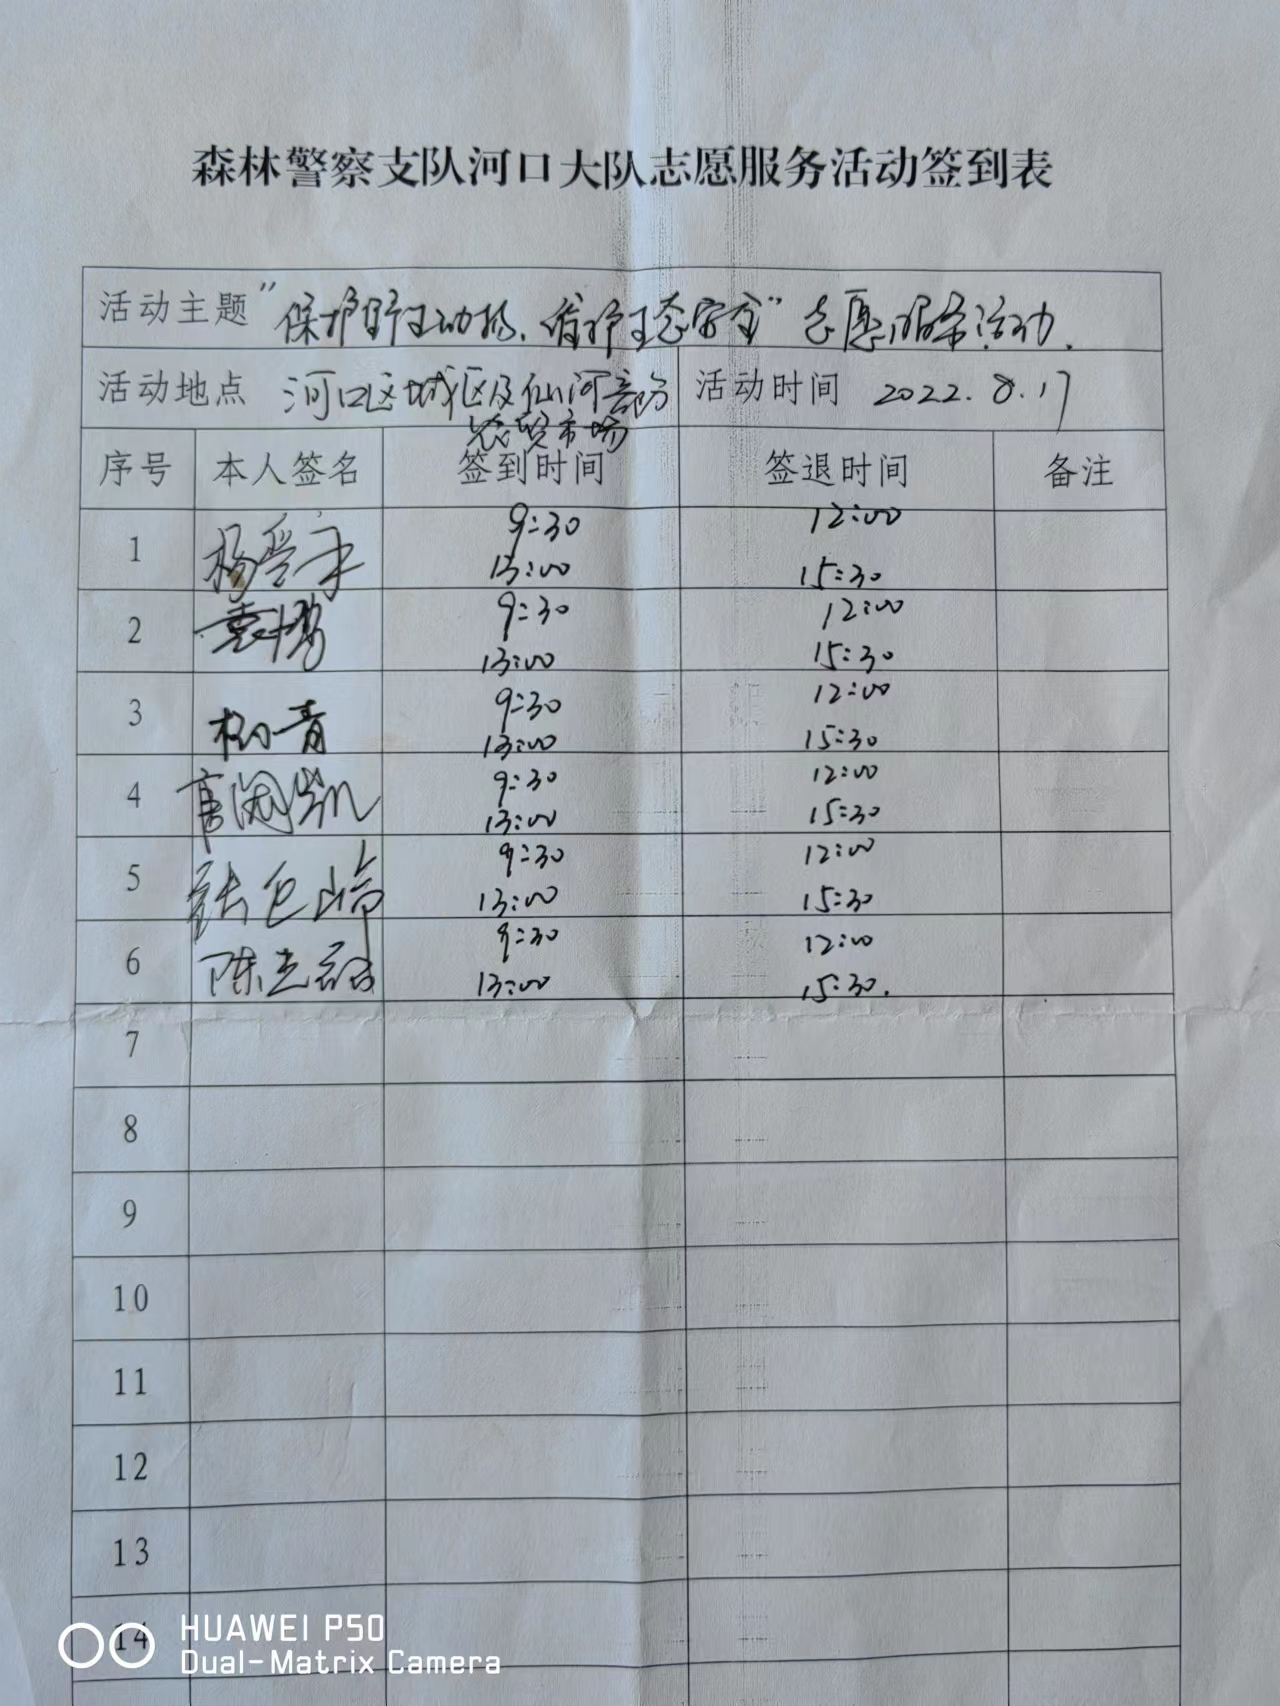 森林警察支队河口大队志愿服务活动签到表
活动主题 "保护野生动物、维护生态安全"志愿服务活动.
活动地点 河口区城区及仙河部分农贸市场 活动时间 2022.8.17
序号 本人签名 签到时间 签退时间 备注
1 9:30 12:00
13:00 15:30
2 袁博 9:30 12:00
13:00 15:30
3 杨青 9:30 12:00
13:00 15:30
4 9:30 12:00
13:00 15:30
5 9:30 12:00
13:00 15:30
6 9:30 12:00
13:00 15:30.
7
8
9
10
11
12
13
14
HUAWEI P50
Dual-Matrix Camera